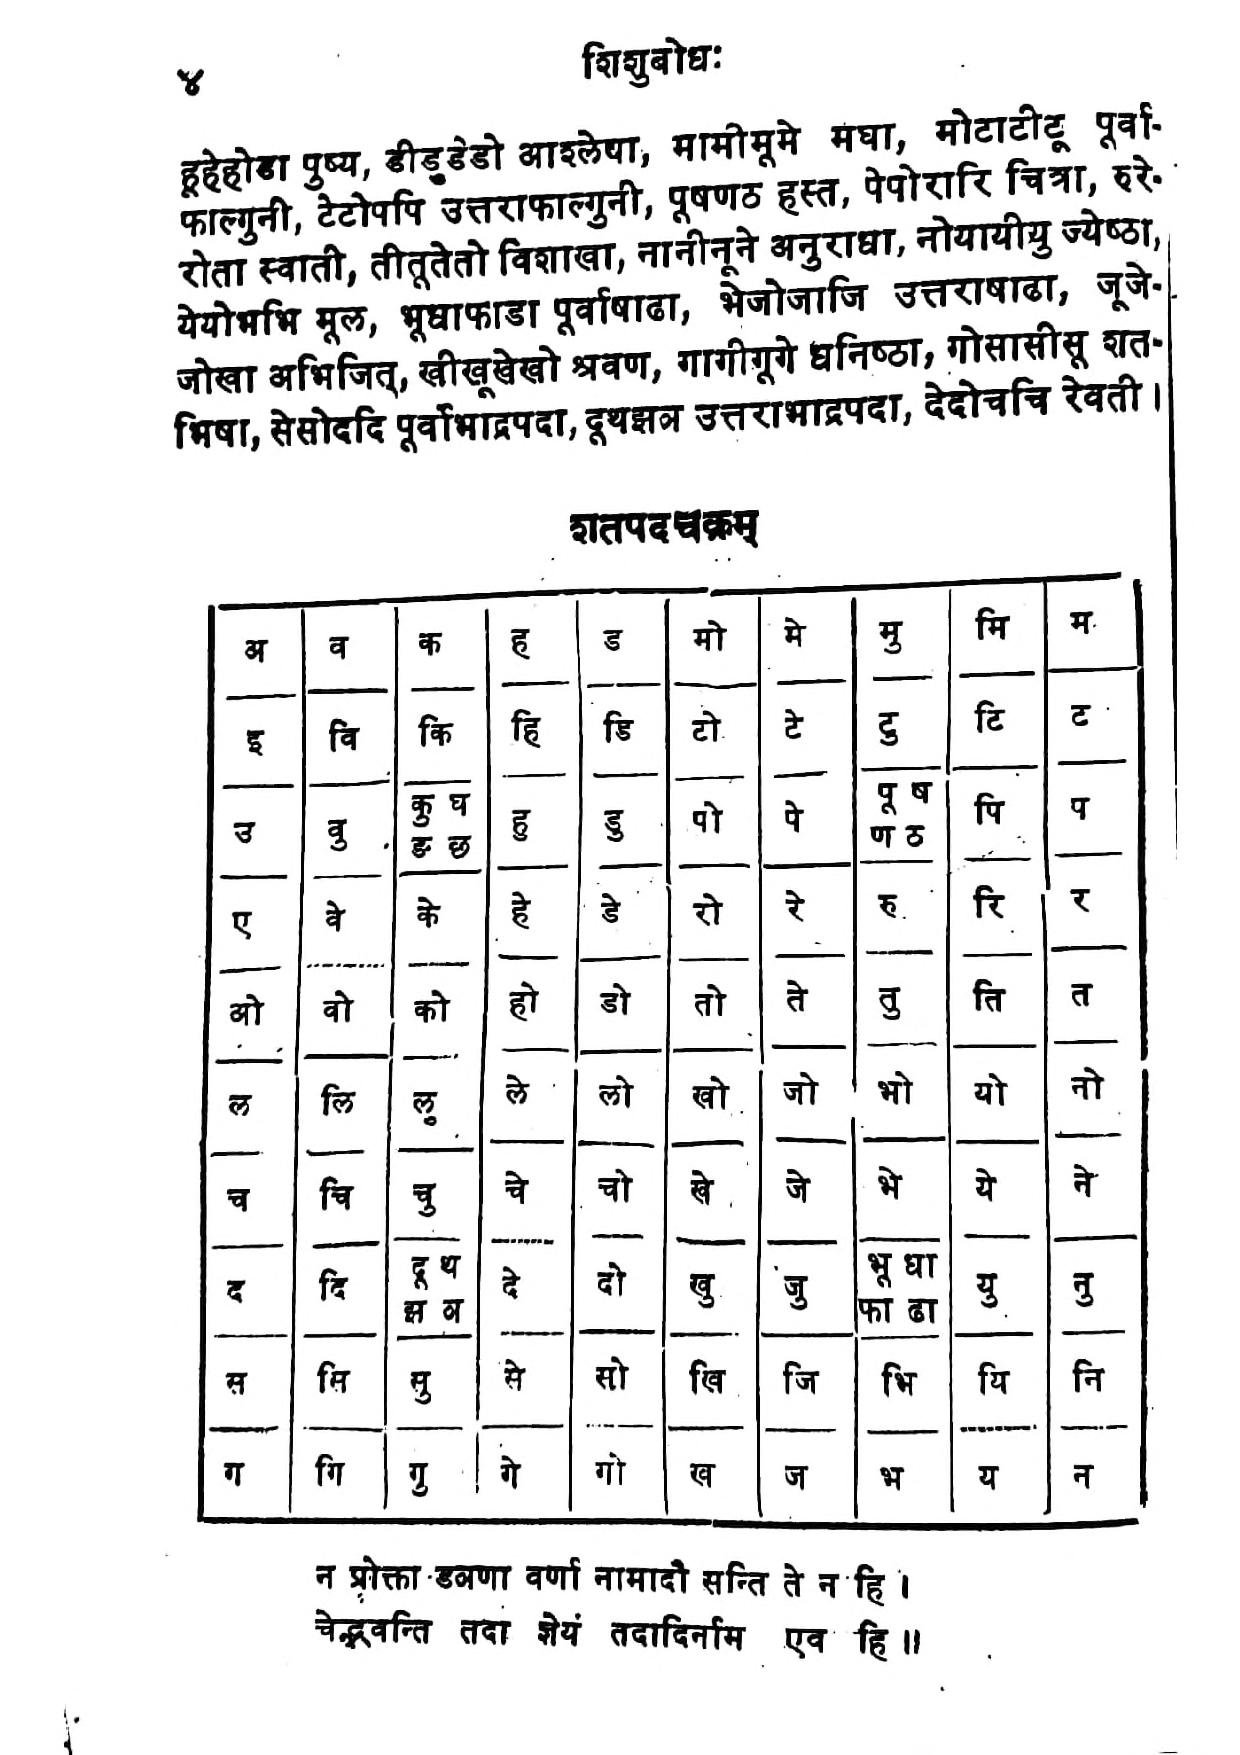 ४
शिशुबोधः
हूहेहोडा पुष्य, डीडुडेडो आश्लेषा, मामीमूमे मघा, मोटाटीटू पूर्वा-
फाल्गुनी, टेटोपपि उत्तराफाल्गुनी, पूषणठ हस्त, पेपोरारि चित्रा, रुरे-
रोता स्वाती, तीतूतेतो विशाखा, नानीनूने अनुराधा, नोयायीयु ज्येष्ठा,
येयोभभि मूल, भूधाफाडा पूर्वाषाढा, भेजोजाजि उत्तराषाढा, जूजे-
जोखा अभिजित्, खीखूखेखो श्रवण, गागीगूगे धनिष्ठा, गोसासीसू शत-
भिषा, सेसोददि पूर्वाभाद्रपदा, दूथझञ उत्तराभाद्रपदा, देदोचचि रेवती ।
शतपदचक्रम्
अ व क ह ड मो मे मु मि म
इ वि कि हि डि टो टे टु टि ट
उ वु कु घ ङ छ हु डु पो पे पू ष ण ठ पि प
ए वे के हे डे रो रे रु रि र
ओ वो को हो डो तो ते तु ति त
ल लि लु ले लो खो जो भो यो नो
च चि चु चे चो खे जे भे ये ने
द दि दू थ झ ञ दे दो खु जु भू धा फा ढा यु नु
स सि सु से सो खि जि भि यि नि
ग गि गु गे गो ख ज भ य न
न प्रोक्ता ङञणा वर्णा नामादौ सन्ति ते न हि ।
चेद्भवन्ति तदा ज्ञेयं तदादिर्नाम एव हि ॥